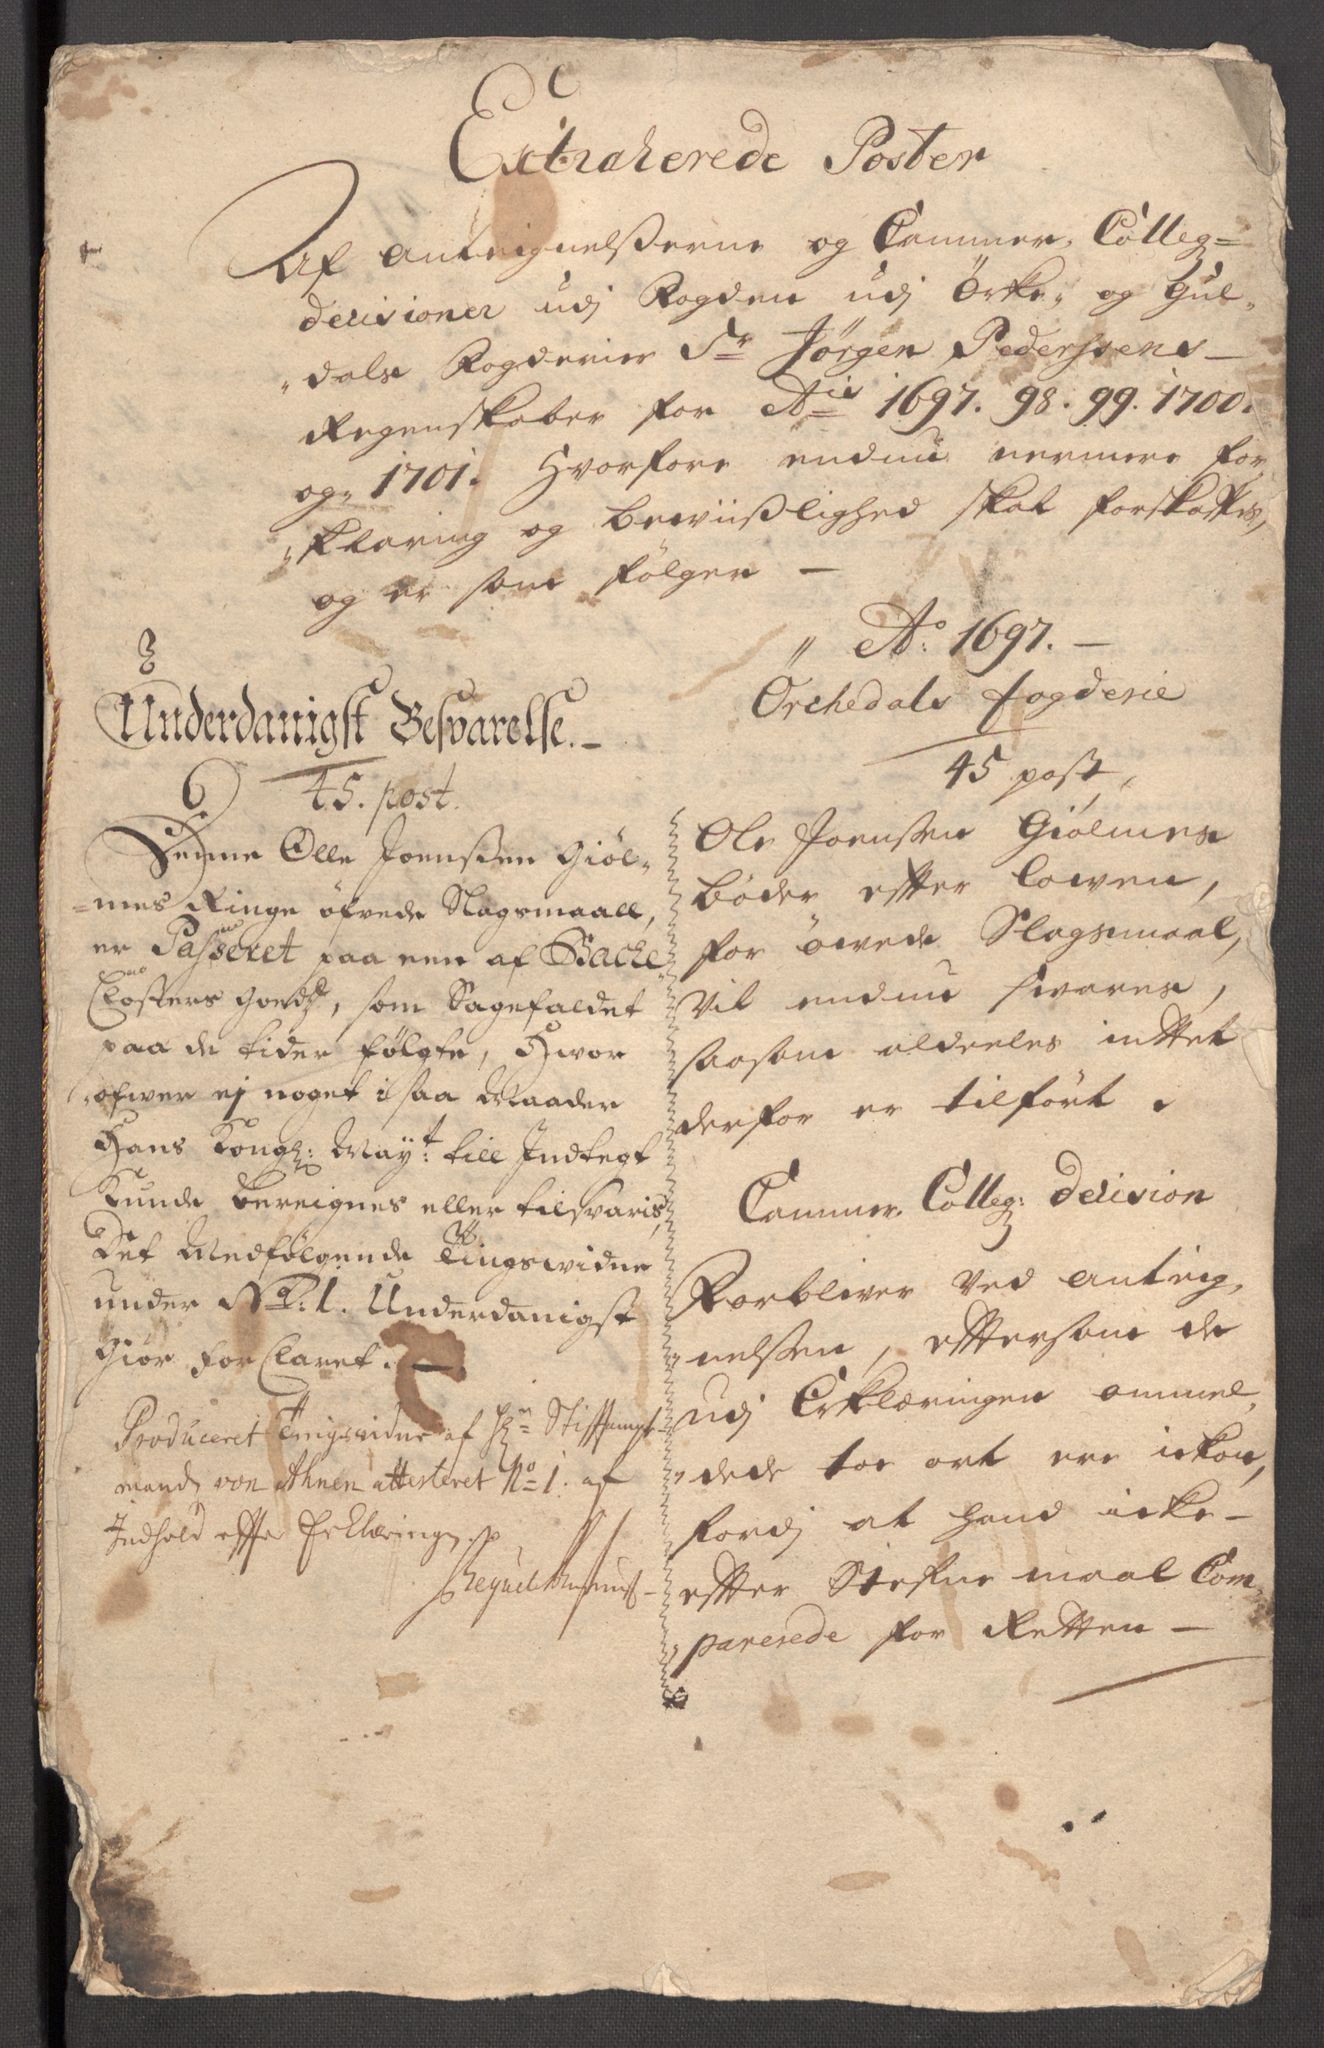 Extraherede Poster
Af Anteignelßerne og Cammer Colleg=
decisioner udj Fogden udj Örke- og Gul-
-dals Fogderier Sr Jörgen Pederssens
Regenskaber for Ais 1697. 98. 99. 1700.
og 1701. Hvorfore endnu nermere for
-klaring og bewiißlighed skal forskaffes,
og er som fölger —
Ao. 1697. —
Örchedals fogderie
45 post,
Ole Joenßen Giölmes
böder effter Lowen,
for öwede Slagsmaal,
vil endnu swares,
saasom aldeeles inttet
derfor er tilfört.
Cammer Colleg: Decision
Forbliwer ved anteig-
nelßen, efftersom de
udj Erklæringen ommel-
dede toe ort ere ickon,
fordj at hand icke
effter Stefne maal Com-
parerede for Retten —
Underdanigst Besvarelse. —
45. post.
Denne Olle Joenßen Giöl-
=mes Ringe öfvede Slagsmaall,
er Passeret paa een af Bache
Closters Goedz, som Sagefaldet
paa de tider fölgte, Hvor
ofwer ej noget i saa Maader
Hans Kongl: Mayt: till Indtegt
Kunde bereignes eller tilsvaris,
Det Medfölgende Tingswidne
under No: 1. Underdanigst
Giör forClaret. —
Produceret Tingsvidne af Hr Stifftampt-
mand von Ahnen attesteret No 1. af
Indhold effter Erklæringen